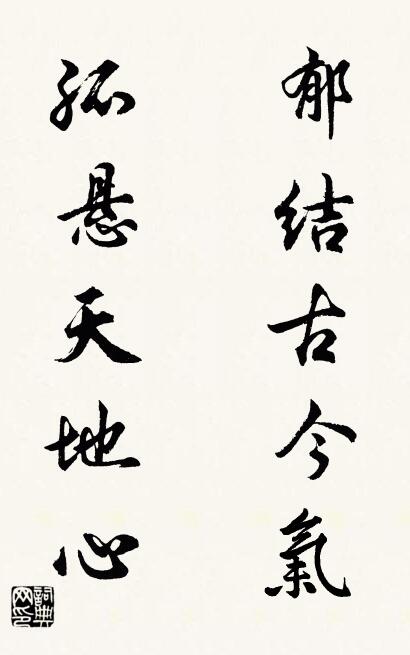 郁结古今氣
孤悬天地心
詞典网印